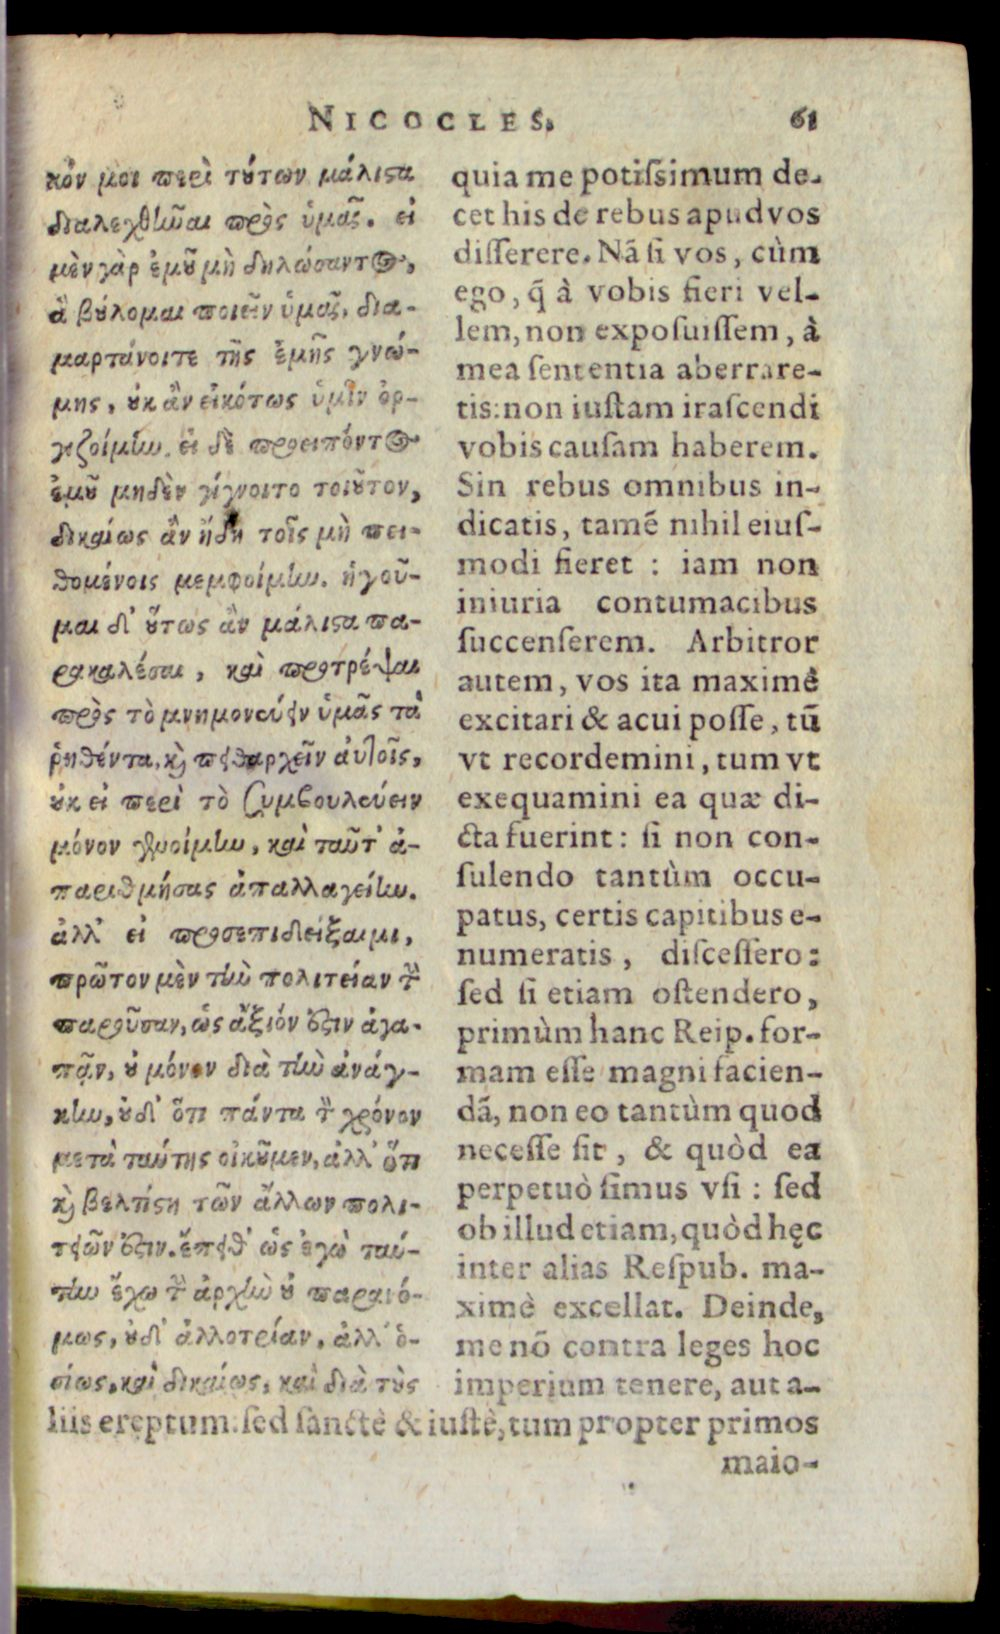 NICOCLES. 61
κὸν μοι περὶ τούτων μάλιστα
διαλεχθῆναι πρὸς ὑμᾶς. εἰ
μὲν γὰρ ἐμοῦ μὴ δηλώσαντος,
ἃ βούλομαι ποιεῖν ὑμᾶς, δια-
μαρτάνοιτε τῆς ἐμῆς γνώ-
μης, οὐκ ἂν εἰκότως ὑμῖν ὀρ-
γιζοίμην. εἰ δὲ προειπόντος
ἐμοῦ μηδὲν γίγνοιτο τοιοῦτον,
δικαίως ἂν ἤδη τοῖς μὴ πει-
θομένοις μεμφοίμην. ἡγοῦ-
μαι δ' οὕτως ἂν μάλιστα πα-
ρακαλέσαι, καὶ προτρέψαι
πρὸς τὸ μνημονεύειν ὑμᾶς τὰ
ῥηθέντα, καὶ πειθαρχεῖν αὐτοῖς,
οὐκ εἰ περὶ τὸ συμβουλεύειν
μόνον γενοίμην, καὶ ταῦτ' ἀ-
παριθμήσας ἀπαλλαγείην.
ἀλλ' εἰ προσεπιδείξαιμι,
πρῶτον μὲν τὴν πολιτείαν τὴν
παροῦσαν, ὡς ἄξιόν ἐστιν ἀγα-
πᾷν, οὐ μόνον διὰ τὴν ἀνάγ-
κην, οὐδ' ὅτι πάντα τὸν χρόνον
μετὰ ταύτης οἰκοῦμεν, ἀλλ' ὅτι
καὶ βελτίστη τῶν ἄλλων πολι-
τειῶν ἐστιν. ἔπειθ' ὡς ἐγὼ ταύ-
την ἔχω τὴν ἀρχὴν οὐ παρανό-
μως, οὐδ' ἀλλοτρίαν, ἀλλ' ὁ-
σίως, καὶ δικαίως, καὶ διὰ τοὺς
quia me potissimum de-
cet his de rebus apud vos
disserere. Nã si vos, cùm
ego, q̃ à vobis fieri vel-
lem, non exposuissem, à
mea sententia aberrare-
tis: non iustam irascendi
vobis causam haberem.
Sin rebus omnibus in-
dicatis, tamẽ nihil eius-
modi fieret : iam non
iniuria contumacibus
succenserem. Arbitror
autem, vos ita maximè
excitari & acui posse, tũ
vt recordemini, tum vt
exequamini ea quæ di-
cta fuerint: si non con-
sulendo tantùm occu-
patus, certis capitibus e-
numeratis, discessero:
sed si etiam ostendero,
primùm hanc Reip. for-
mam esse magni facien-
dã, non eo tantùm quod
necesse sit, & quòd ea
perpetuò simus vsi : sed
ob illud etiam, quòd hęc
inter alias Respub. ma-
ximè excellat. Deinde,
me nõ contra leges hoc
imperium tenere, aut a-
liis ereptum: sed sanctè & iustè, tum propter primos
maio-